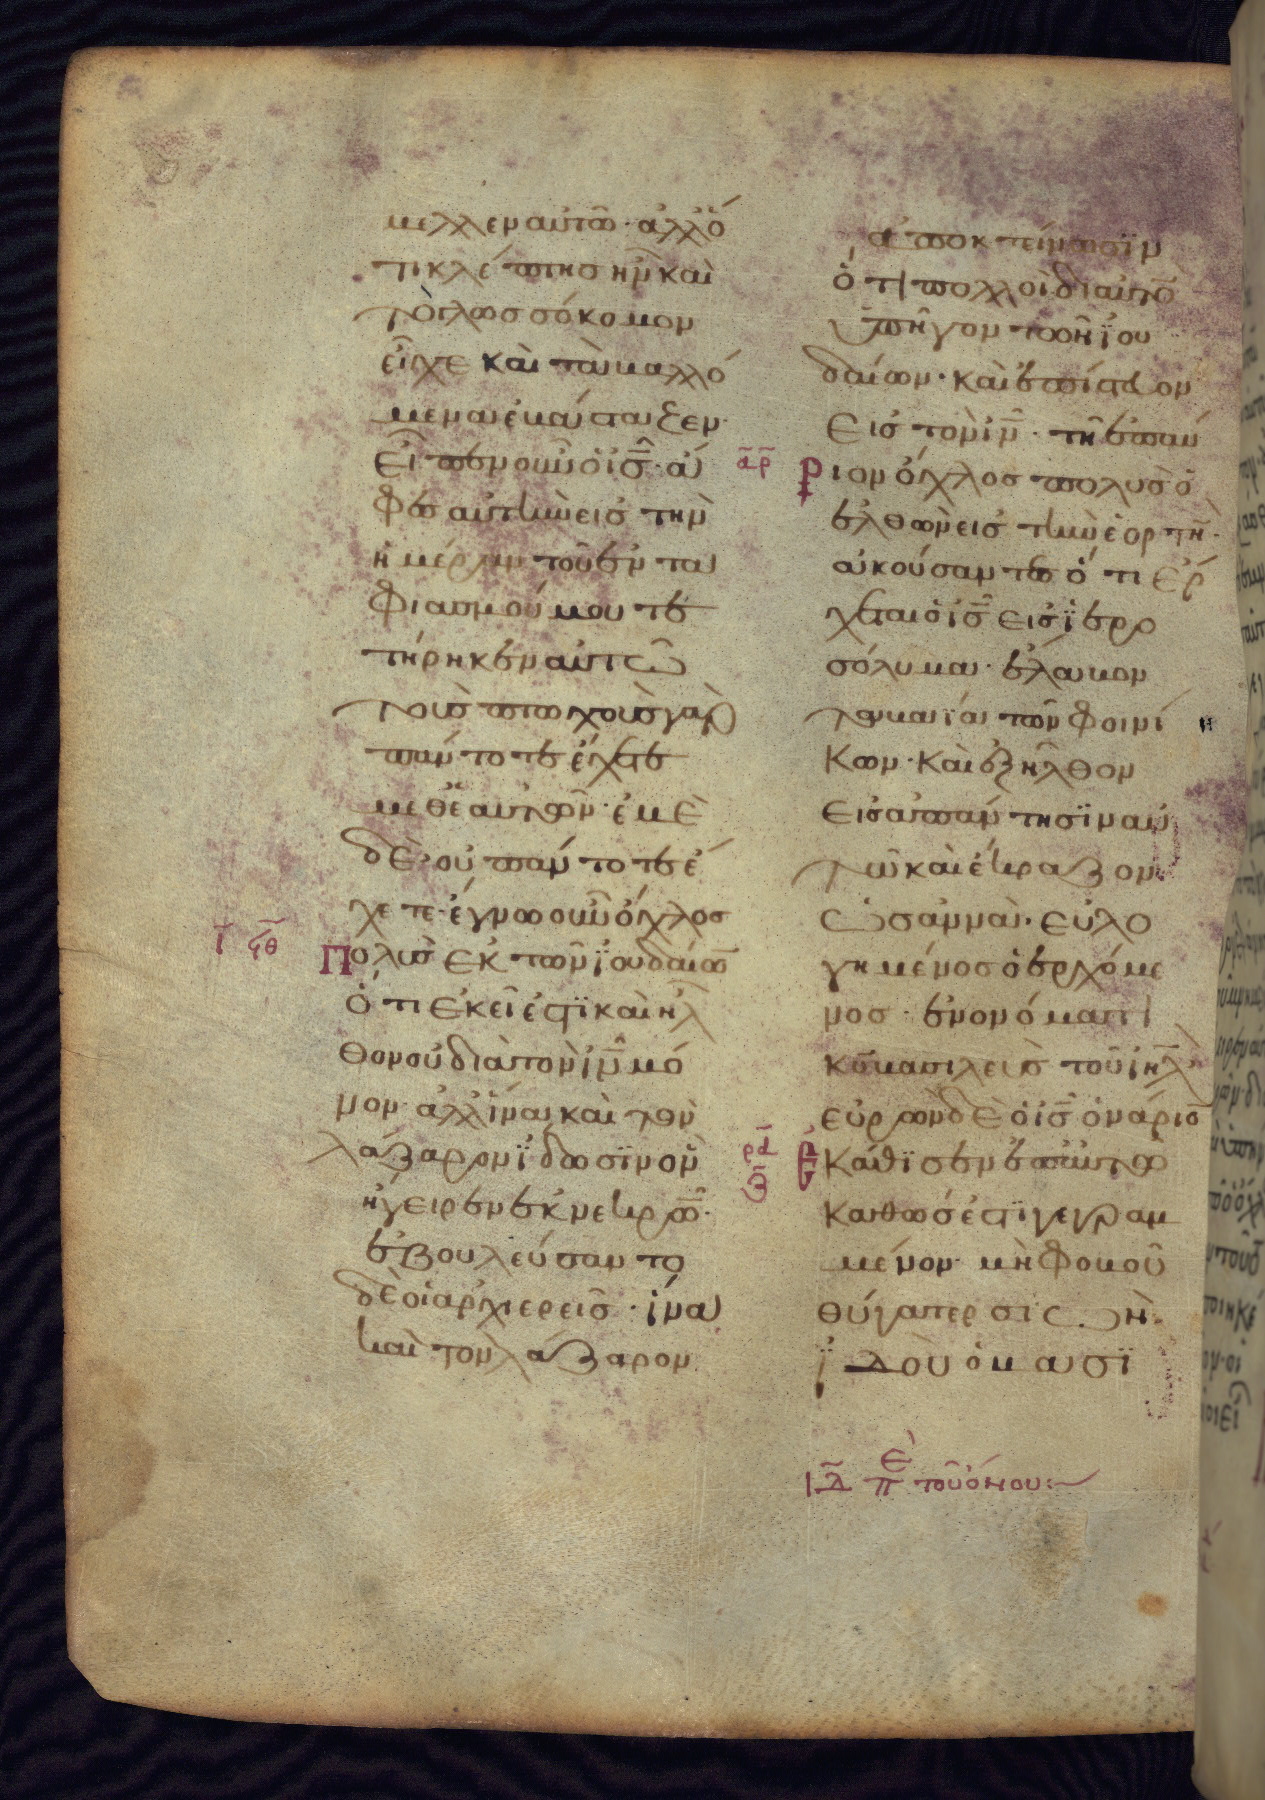 μελλεν αὐτῶ· ἀλλ᾽ ὅ
τι κλέπτης ἦν καὶ
τὸ γλωσσόκομον
εἶχε καὶ τὰ βαλλό
μενα ἐβάσταζεν·
Εἶπεν οὖν ὁ ἰς̅· ἄ
φες αὐτὴν εἰς τὴν
ἡμέραν τοῦ ἐντα
φιασμού μου τε
τήρηκεν αὐτῶ
τοὺς πτωχοὺς γὰρ
πάντοτε ἔχετε
μεθ᾽ ἑαυτῶν· ἐμὲ
δὲ οὐ πάντοτε ἔ
χετε· ἔγνω οὖν ὄχλος
ῑ ϟθ Πολὺς ἐκ τῶν ϊουδαίω̅
ὅτι ἐκεῖ ἐστϊ καὶ ἦλ
θον οὐ διὰ τὸν ἰν̅ μό
νον· ἀλλ᾽ ἵνα καὶ τὸν
λάζαρον ϊδωσϊν ὃν
ἤγειρεν ἐκ νεκρῶ̅·
ἐβουλεύσαντο
δὲ οἱ ἀρχιερεῖς· ἵνα
καὶ τὸν λάζαρον
ἀποκτείνωσϊν
ὅτι πολλοὶ δι᾽ αὐτὸ̅
ὑπῆγον τῶν ϊου
δαίων· καὶ ἐπίστευον
Εἰς τὸν ἰν̅· τῆ ἐπαύ
α̅ ρ̅ Ριον ὄχλος πολὺς ὁ
ἐλθὼν εἰς τὴν ἑορτὴν·
ἀκούσαντες ὅτι ἔρ
χεται ὁ ἰς̅ εἰς ϊερο
σόλυμα· ἔλαβον
τὰ βαΐα τῶν φοινί
κων· καὶ ἐξῆλθον
εἰς ἀπάντησϊν αὐ
τῶ καὶ ἔκραζον
Ὡσαννὰ· εὐλο
γημένος ὁ ἐρχόμε
νος· ἐν ὀνόματι
κυ̅ βασιλεὺς τοῦ ἰηλ̅
εὑρὼν δὲ ὁ ἰς̅ ὀνάριο̅
ρα̅ ζ̅ Ἐκάθϊσεν ἐπ᾽ αὐτῶ
καθώς ἐστϊ γεγραμ
μένον· μὴ φοβοῦ
θύγατερ σιὼν·
ϊδοὺ ὁ βασϊ
ιδ̅ πε̅ τοῦ ὄνου: